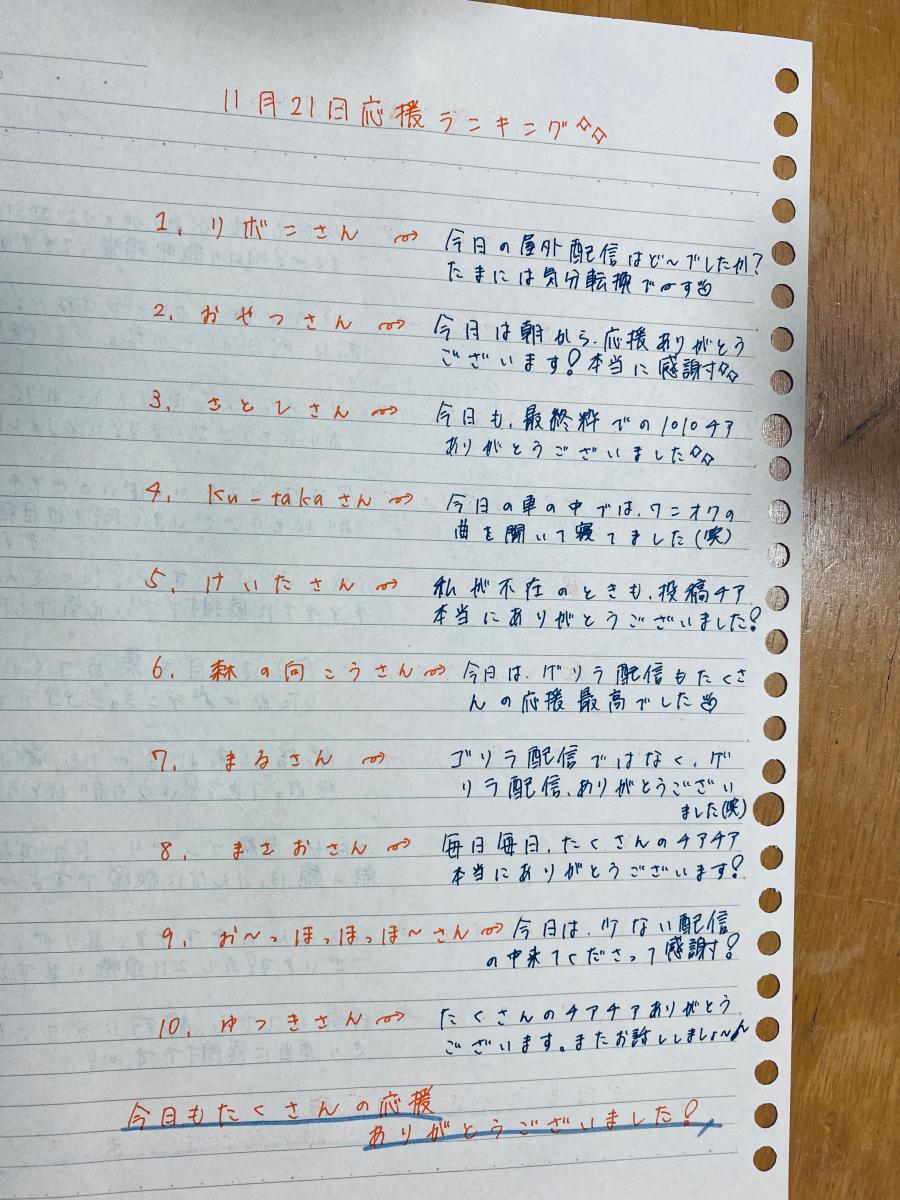 11月21日応援ランキング☆☆
1. リボニさん ⇝ 今日の屋外配信はど〜でしたか?
たまには気分転換で〜す
2. おやつさん ⇝ 今日は朝から、応援ありがとう
ございます!本当に感謝す☆☆
3. さとしさん ⇝ 今日も、最終粋での1010チア
ありがとうございました☆☆
4. ku-takaさん ⇝ 今日の車の中では、ワニオワの
曲を聞いて寝てました(笑)
5. けいたさん ⇝ 私が不在のときも、投稿チア
本当にありがとうございました!
6. 森の向こうさん ⇝ 今日は、ゲリラ配信もたくさ
んの応援最高でした
7. まるさん ⇝ ゴリラ配信ではなく、ゲ
リラ配信、ありがとうござい
ました(笑)
8. まさおさん ⇝ 毎日毎日、たくさんのチアチア
本当にありがとうございます!
9. お〜っほっほっほ〜さん ⇝ 今日は、少ない配信
の中来てくださって感謝す!
10. ゆつきさん ⇝ たくさんのチアチアありがとう
ございます。またお話ししましょ〜
今日もたくさんの応援
ありがとうございました!